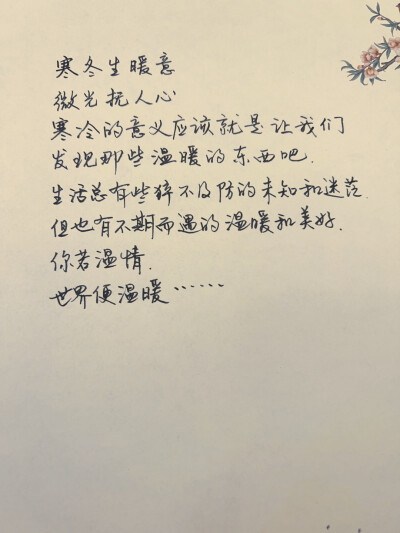 寒冬生暖意
微光抚人心
寒冷的意义应该就是让我们
发现那些温暖的东西吧.
生活总有些猝不及防的未知和迷茫.
但也有不期而遇的温暖和美好.
你若温情.
世界便温暖……